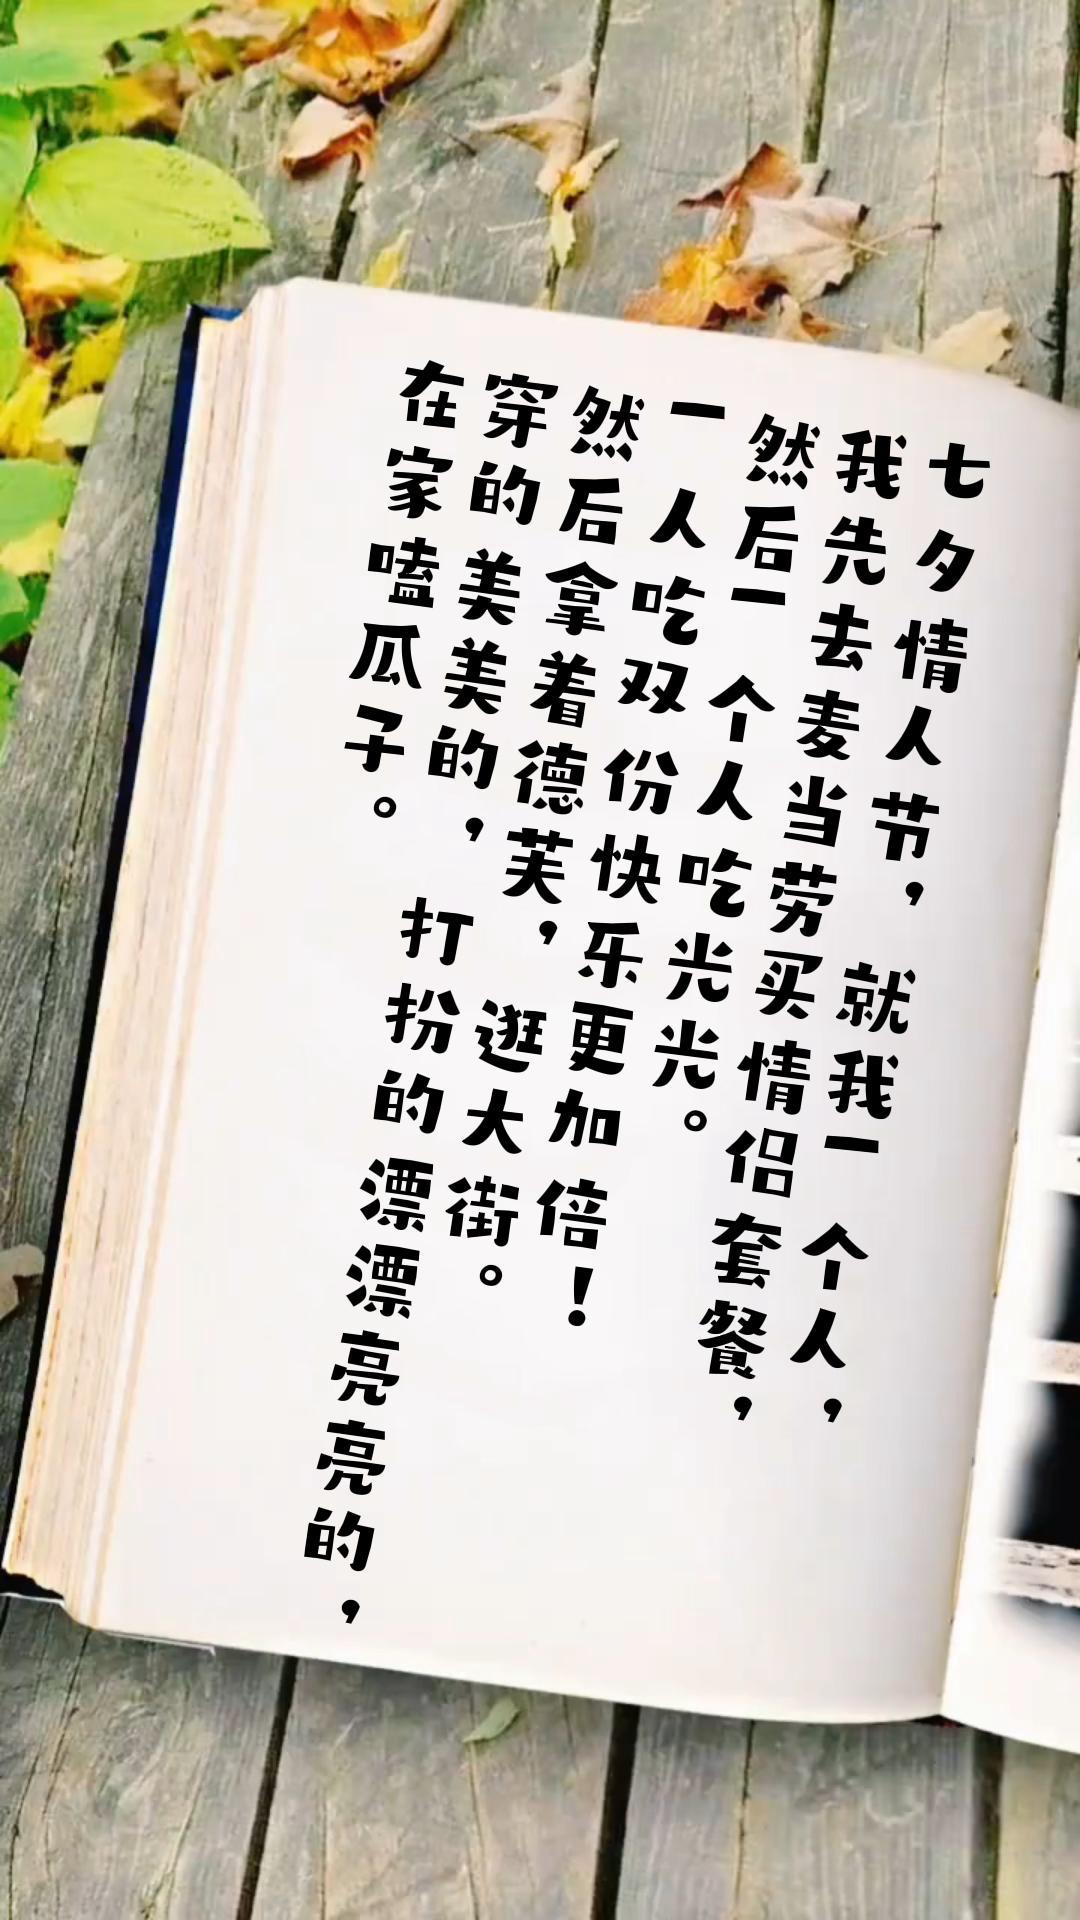 七夕情人节，就我一个人，
我先去麦当劳买情侣套餐，
然后一个人吃光光。
一人吃双份快乐更加倍！
然后拿着德芙，逛大街。
穿的美美的，打扮的漂漂亮亮的，
在家嗑瓜子。